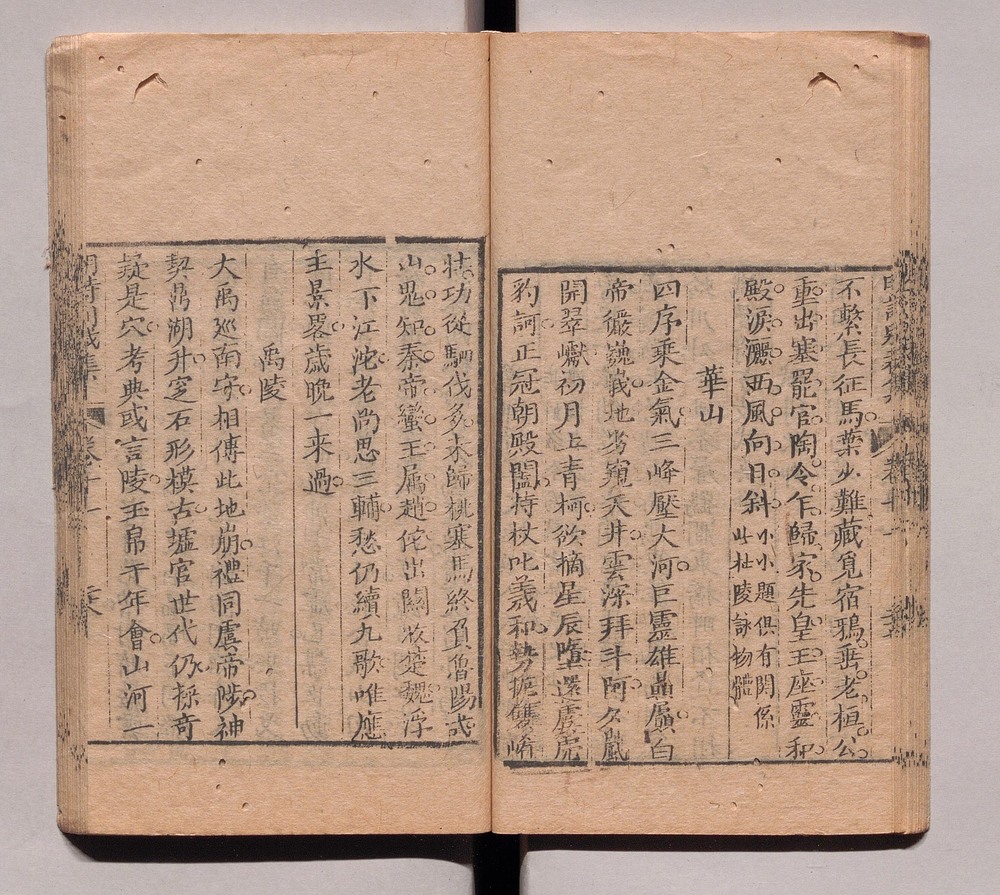 不繫長征馬葉少難藏覓宿鴉垂老桓公
重出塞罷官陶令乍歸家先皇玉座靈和
殿淚灑西風向日斜
小小題俱有關係
此杜陵詠物體
華山
四序乘金氣三峰壓大河巨靈雄贔屭白
帝儼巍峩地劣窺天井雲深拜斗阿夕嵐
開翠巘初月上青柯欲摘星辰墮還虞虎
豹訶正冠朝殿闥持杖叱羲和勢扼雙崤
壯功從駟伐多未歸桃塞馬終負魯陽戈
山鬼知秦帝蠻王屬趙佗出關收楚魏浮
水下江沱老尚思三輔愁仍續九歌唯應
主景畧歲晚一来過
禹陵
大禹巡南守相傳此地崩禮同虞帝陟神
契鼎湖升窆石形模古墟官世代仍探奇
疑是穴考典或言陵玉帛千年會山河一